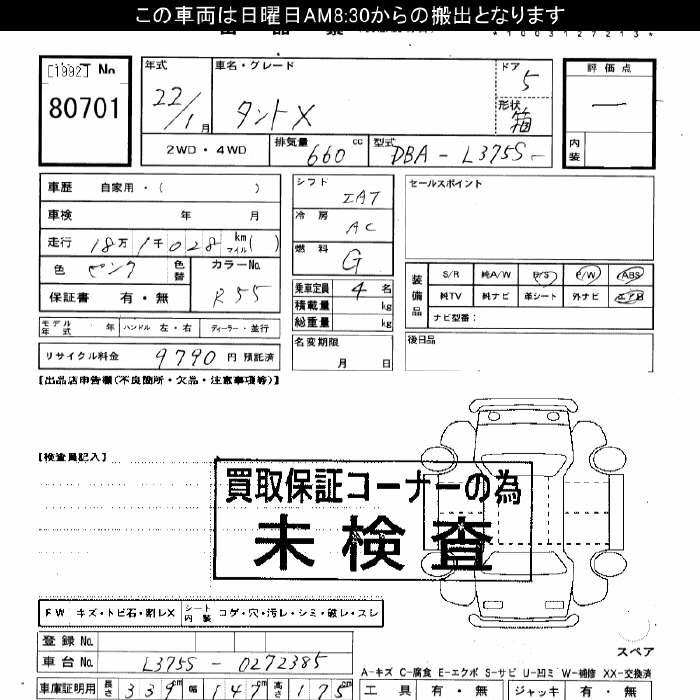 この車両は日曜日AM8:30からの搬出となります
*1003127213*
[1992] No
80701
年式 22/1月
車名・グレード タントX
ドア 5
形状 箱
評価点 —
内装
2WD・4WD
排気量 660 cc
型式 DBA - L375S -
車歴 自家用・( )
車検 年 月
走行 18万1千028 km マイル ( )
色 ピンク 色替
カラーNo. R55
保証書 有・無
モデル年式 年 ハンドル 左・右 ディーラー・並行
リサイクル料金 9790 円 預託済
シフト IAT
冷房 AC
燃料 G
乗車定員 4 名
積載量 kg
総重量 kg
名変期限
月 日
セールスポイント
装備品
S/R 純A/W P/S P/W ABS
純TV 純ナビ 革シート 外ナビ エアB
ナビ型番:
後日品
【出品店申告欄(不良箇所・欠品・注意事項等)】
【検査員記入】
買取保証コーナーの為
未検査
FW キズ・トビ石・割レX
シート内装 コゲ・穴・汚レ・シミ・破レ・スレ
登録No.
車台No. L375S - 0272385
車庫証明用 長さ 339cm 幅 147cm 高さ 175cm
スペア
A-キズ C-腐食 E-エクボ S-サビ U-凹ミ W-補修 XX-交換済
工具 有・無 ジャッキ 有・無